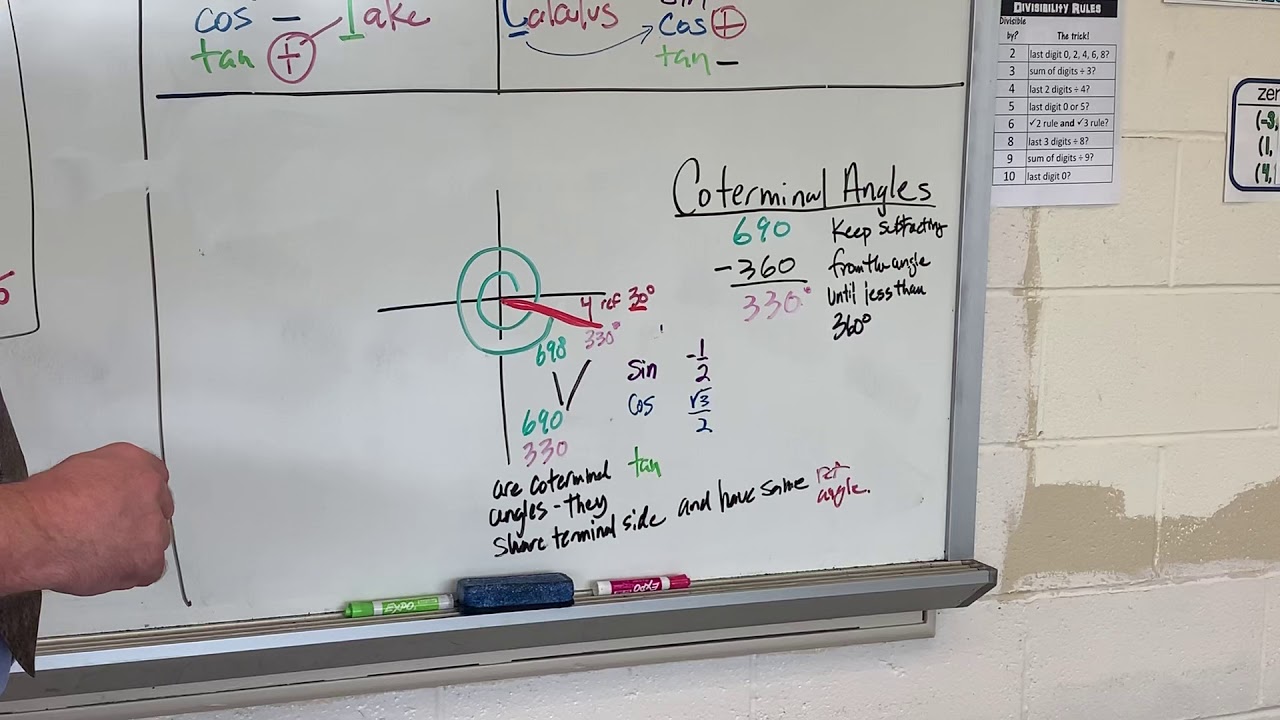 cos –
tan + Take
Calculus
cos +
tan –
DIVISIBILITY RULES
Divisible by? The trick!
2 last digit 0, 2, 4, 6, 8?
3 sum of digits ÷ 3?
4 last 2 digits ÷ 4?
5 last digit 0 or 5?
6 ✓2 rule and ✓3 rule?
8 last 3 digits ÷ 8?
9 sum of digits ÷ 9?
10 last digit 0?
Coterminal Angles
690
-360
330°
Keep subtracting
from the angle
until less than
360°
ref 30°
330°
690
690
330
sin -1/2
cos √3/2
tan
are coterminal
angles - they
share terminal side and have same ref
angle.
EXPO
EXPO